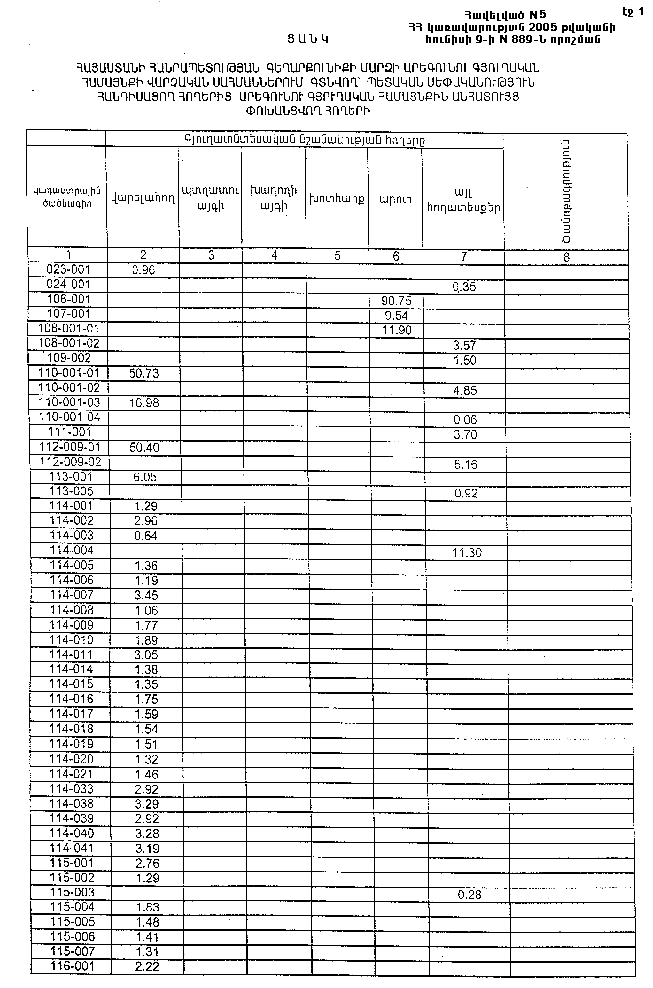 Հավելված N5 էջ 1
ՀՀ կառավարության 2005 թվականի
ՑԱՆԿ հունիսի 9-ի N 889-Ն որոշման
ՀԱՅԱՍՏԱՆԻ ՀԱՆՐԱՊԵՏՈՒԹՅԱՆ ԳԵՂԱՐՔՈՒՆԻՔԻ ՄԱՐԶԻ ԱՐԵԳՈՒՆՈՒ ԳՅՈՒՂԱԿԱՆ
ՀԱՄԱՅՆՔԻ ՎԱՐՉԱԿԱՆ ՍԱՀՄԱՆՆԵՐՈՒՄ ԳՏՆՎՈՂ՝ ՊԵՏԱԿԱՆ ՍԵՓԱԿԱՆՈՒԹՅՈՒՆ
ՀԱՆԴԻՍԱՑՈՂ ՀՈՂԵՐԻՑ ԱՐԵԳՈՒՆՈՒ ԳՅՈՒՂԱԿԱՆ ՀԱՄԱՅՆՔԻՆ ԱՆՀԱՏՈՒՅՑ
ՓՈԽԱՆՑՎՈՂ ՀՈՂԵՐԻ
Գյուղատնտեսական նշանակության հողերը
կադաստրային ծածկագիր վարելահող պտղատու այգի խաղողի այգի խոտհարք արոտ այլ հողատեսքեր Ծանոթագրություն
1 2 3 4 5 6 7 8
023-001 3.96
024-001 0.35
106-001 90.75
107-001 9.54
108-001-01 11.90
108-001-02 3.57
109-002 1.50
110-001-01 50.73
110-001-02 4.85
110-001-03 16.98
110-001 04 0.06
111-001 3.70
112-009-01 50.40
112-009-02 5.16
113-001 6.05
113-005 0.92
114-001 1.29
114-002 2.96
114-003 0.64
114-004 11.30
114-005 1.36
114-006 1.19
114-007 3.45
114-008 1.06
114-009 1.77
114-010 1.89
114-011 3.05
114-014 1.38
114-015 1.35
114-016 1.75
114-017 1.59
114-018 1.54
114-019 1.51
114-020 1.32
114-021 1.46
114-033 2.92
114-038 3.29
114-039 2.92
114-040 3.28
114-041 3.19
115-001 2.76
115-002 1.29
115-003 0.28
115-004 1.83
115-005 1.48
115-006 1.41
115-007 1.31
116-001 2.22